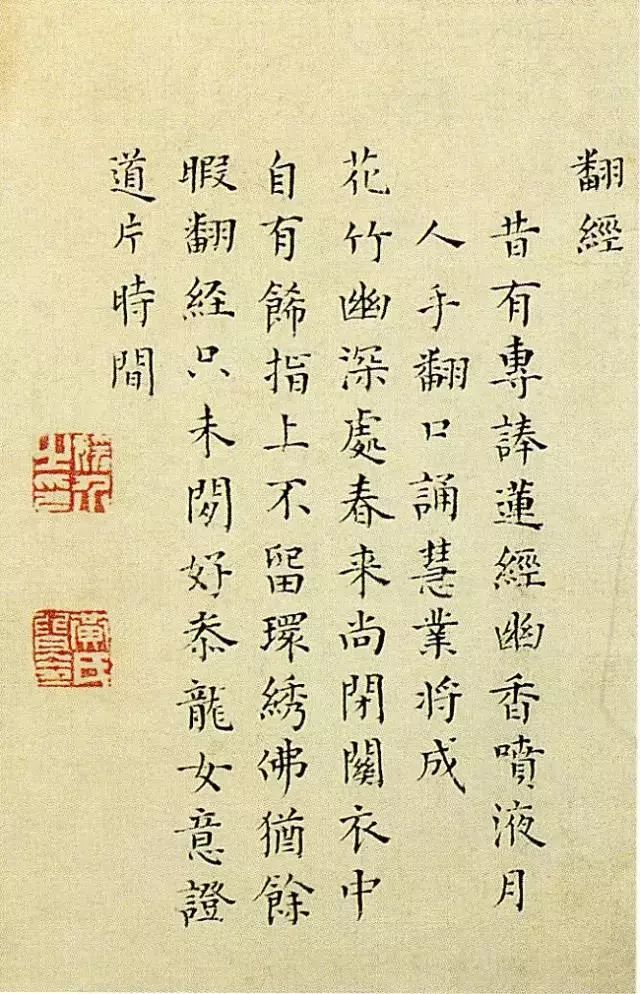 翻經
昔有專蓮經幽香噴液月
人手翻口誦慧業將成
花竹幽深處春来尚閉關衣中
自有餙指上不留環綉佛猶餘
暇翻経只未好叅龍女意證
道片時間